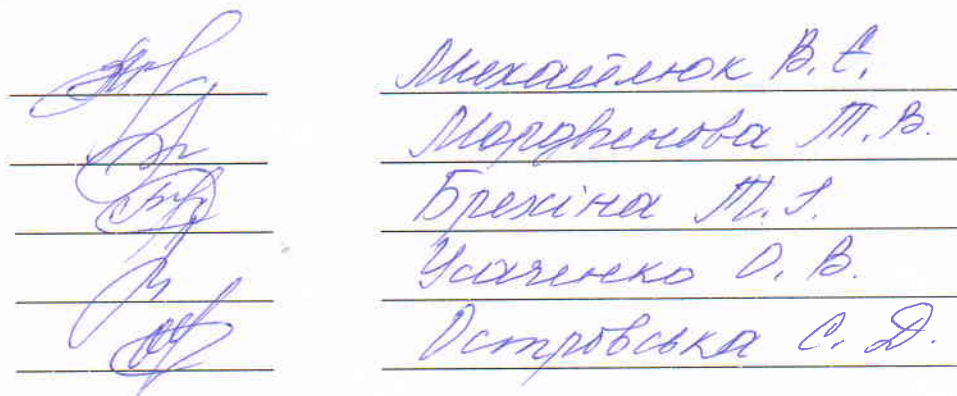 Михайлюк В.Є.
Мордвенова Т.В.
Брехіна Т.І.
Усаченко О.В.
Островська С.Д.